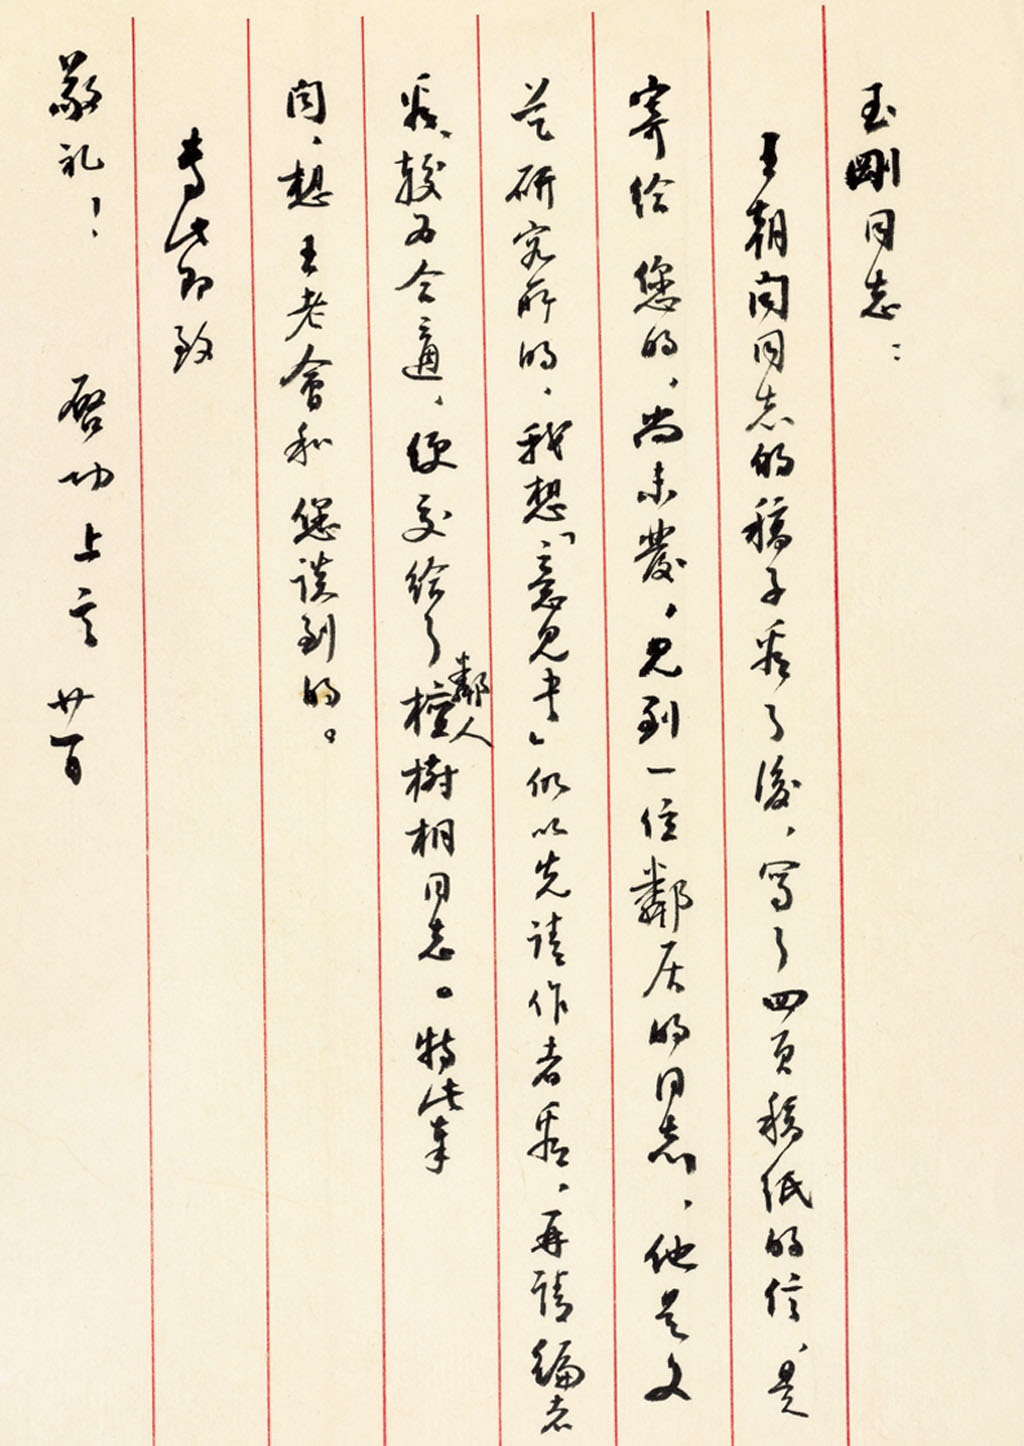 玉剛同志：
王朝闻同志的稿子看了後，写了四页稿纸的信，是
寄给您的，尚未發，見到一位鄰居的同志，他是文
艺研究所的，我想「意見书」似以先請作者看，再請编者
看，較为合適，便交给了檀樹相同志。特此奉
鄰人
闻，想王老會和您談到的。
專此即致
敬礼！
启功上言 廿一日